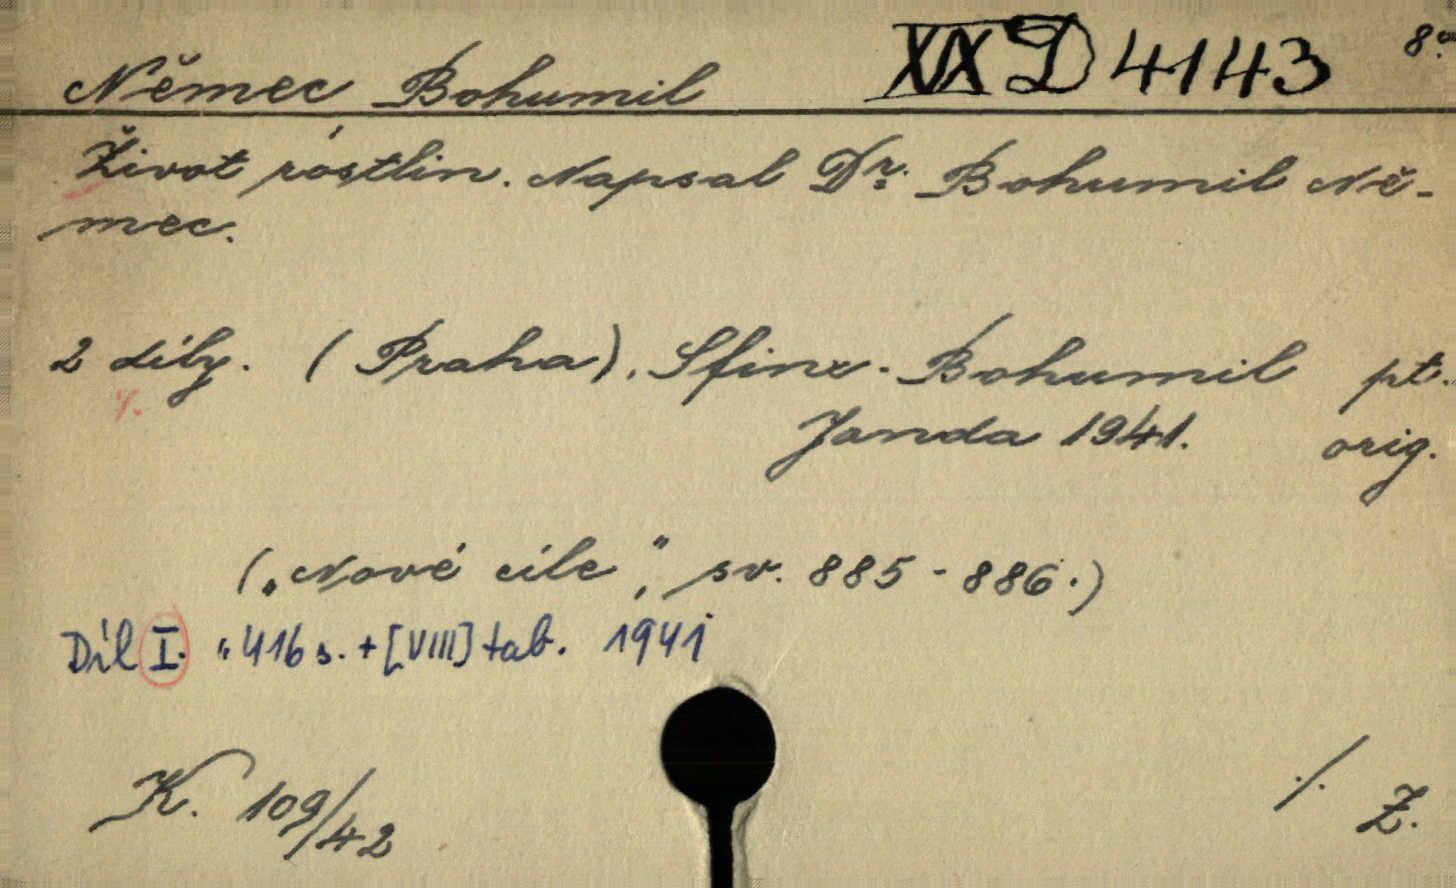 Němec Bohumil XIX D 4143 8°
Život róstlin. Napsal Dr. Bohumil Ně-
mec.
2 díly. (Praha), Sfinx-Bohumil pt.
Janda 1941. orig.
(„Nové cíle“, sv. 885-886.)
Díl I. 416 s. + [VIII] tab. 1941
K. 109/42 ./. Z.